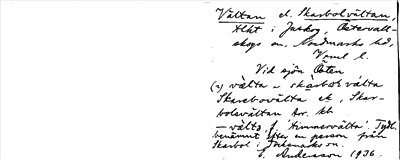 Vältan el. Skarbolvältan,
tlht i Jutskog, Östervall-
skogs sn. Nordmarks hd,
Vrml l.
Vid sjön Östen
(2) vælta u skarbol vålta
Skarebovälta el, Skar-
bolevältan
– välta f. 'timmervälta'. Tydl.
benämnt efter en person från
Skarbol i
S. Andersson 1936.